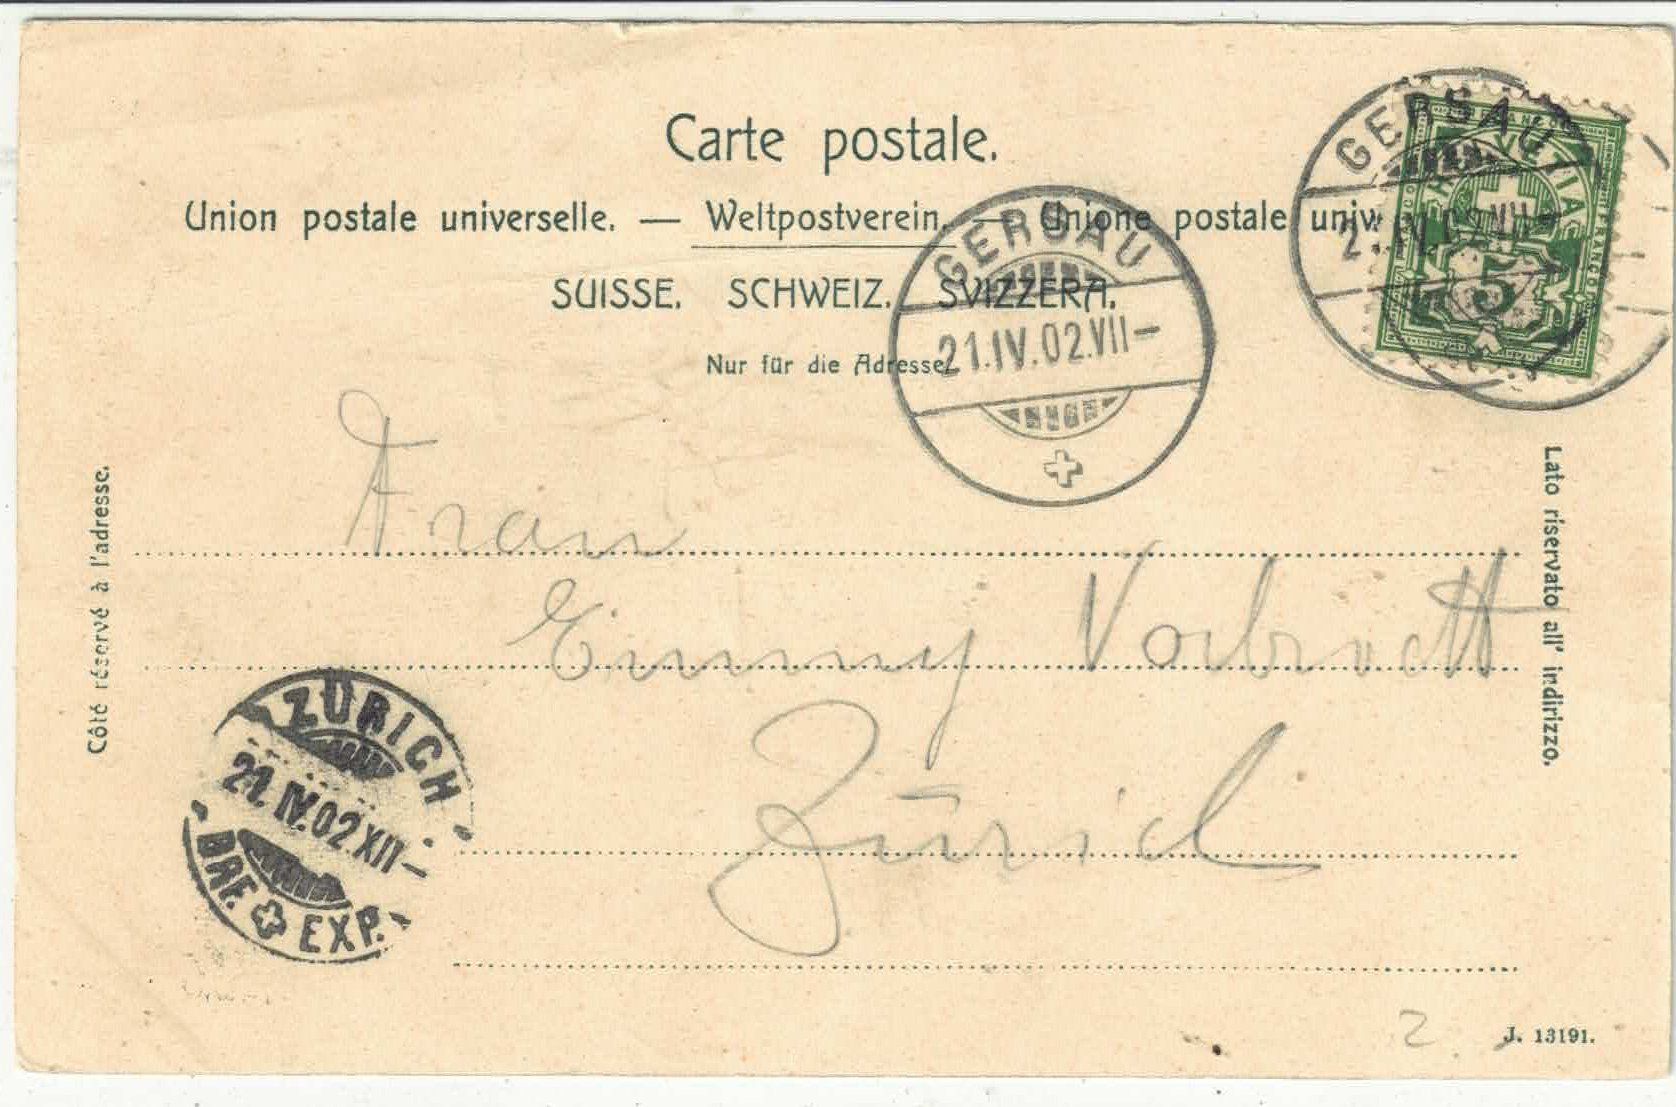 Carte postale.
Union postale universelle. — Weltpostverein. — Unione postale univ
SUISSE. SCHWEIZ. SVIZZERA.
Nur für die Adresse.
GERSAU
21.IV.02.VII—
GERSAU
HELVETIA
5
FRANCO
Côté réservé à l'adresse.
Lato riservato all' indirizzo.
Frau
Emmy Vorbrodt
Zürich
ZÜRICH
21.IV.02.XII—
BRF. EXP.
2
J. 13191.